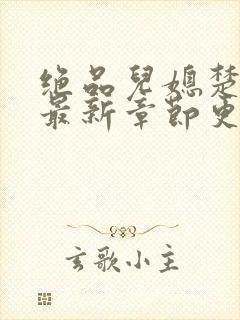 绝品儿媳楚
最新章节更
玄歌小主